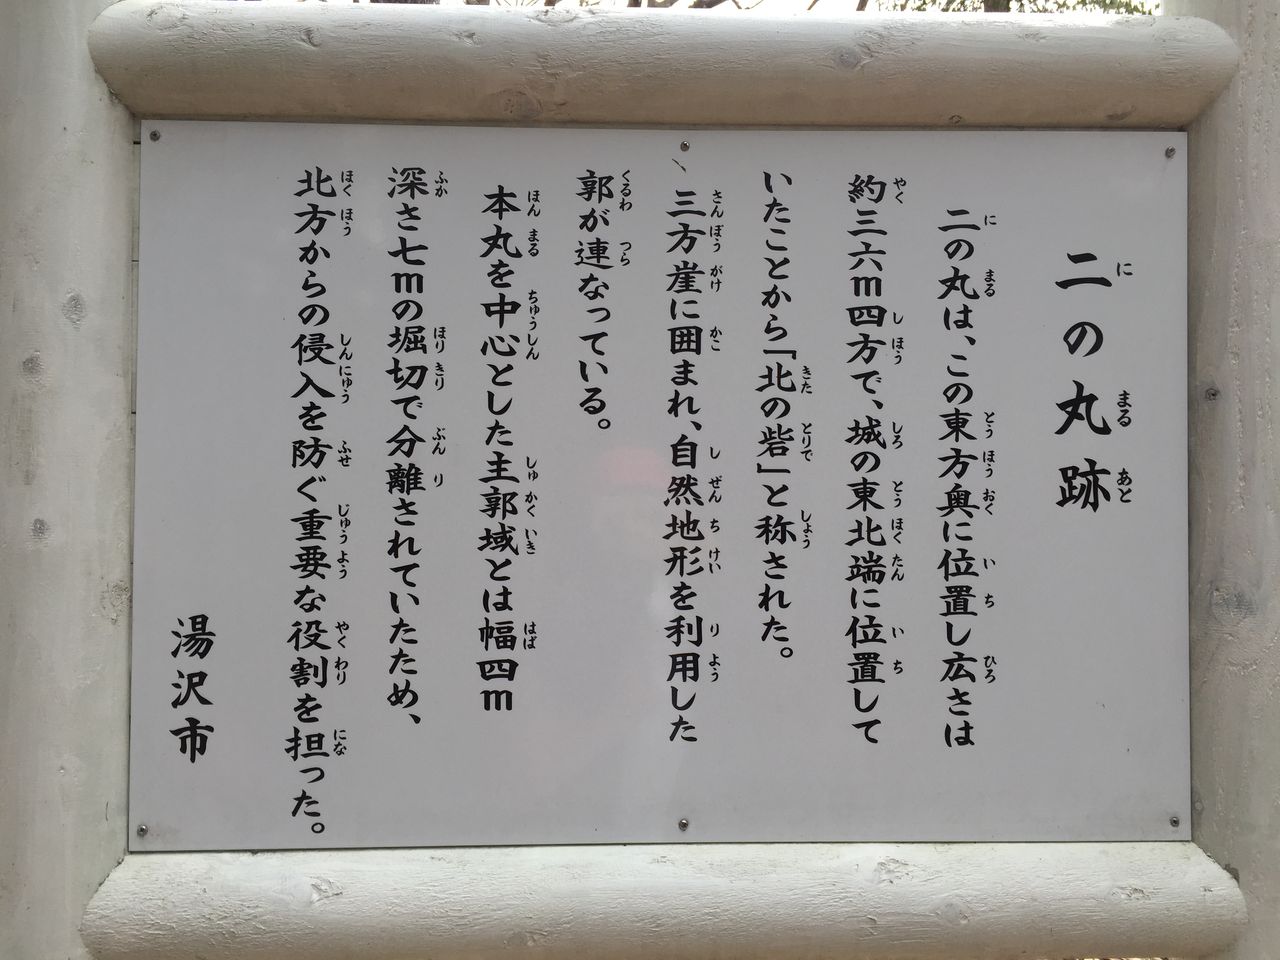 二の丸跡
二の丸は、この東方奥に位置し広さは
約三六m四方で、城の東北端に位置して
いたことから「北の砦」と称された。
三方崖に囲まれ、自然地形を利用した
郭が連なっている。
本丸を中心とした主郭域とは幅四m
深さ七mの堀切で分離されていたため、
北方からの侵入を防ぐ重要な役割を担った。
湯沢市